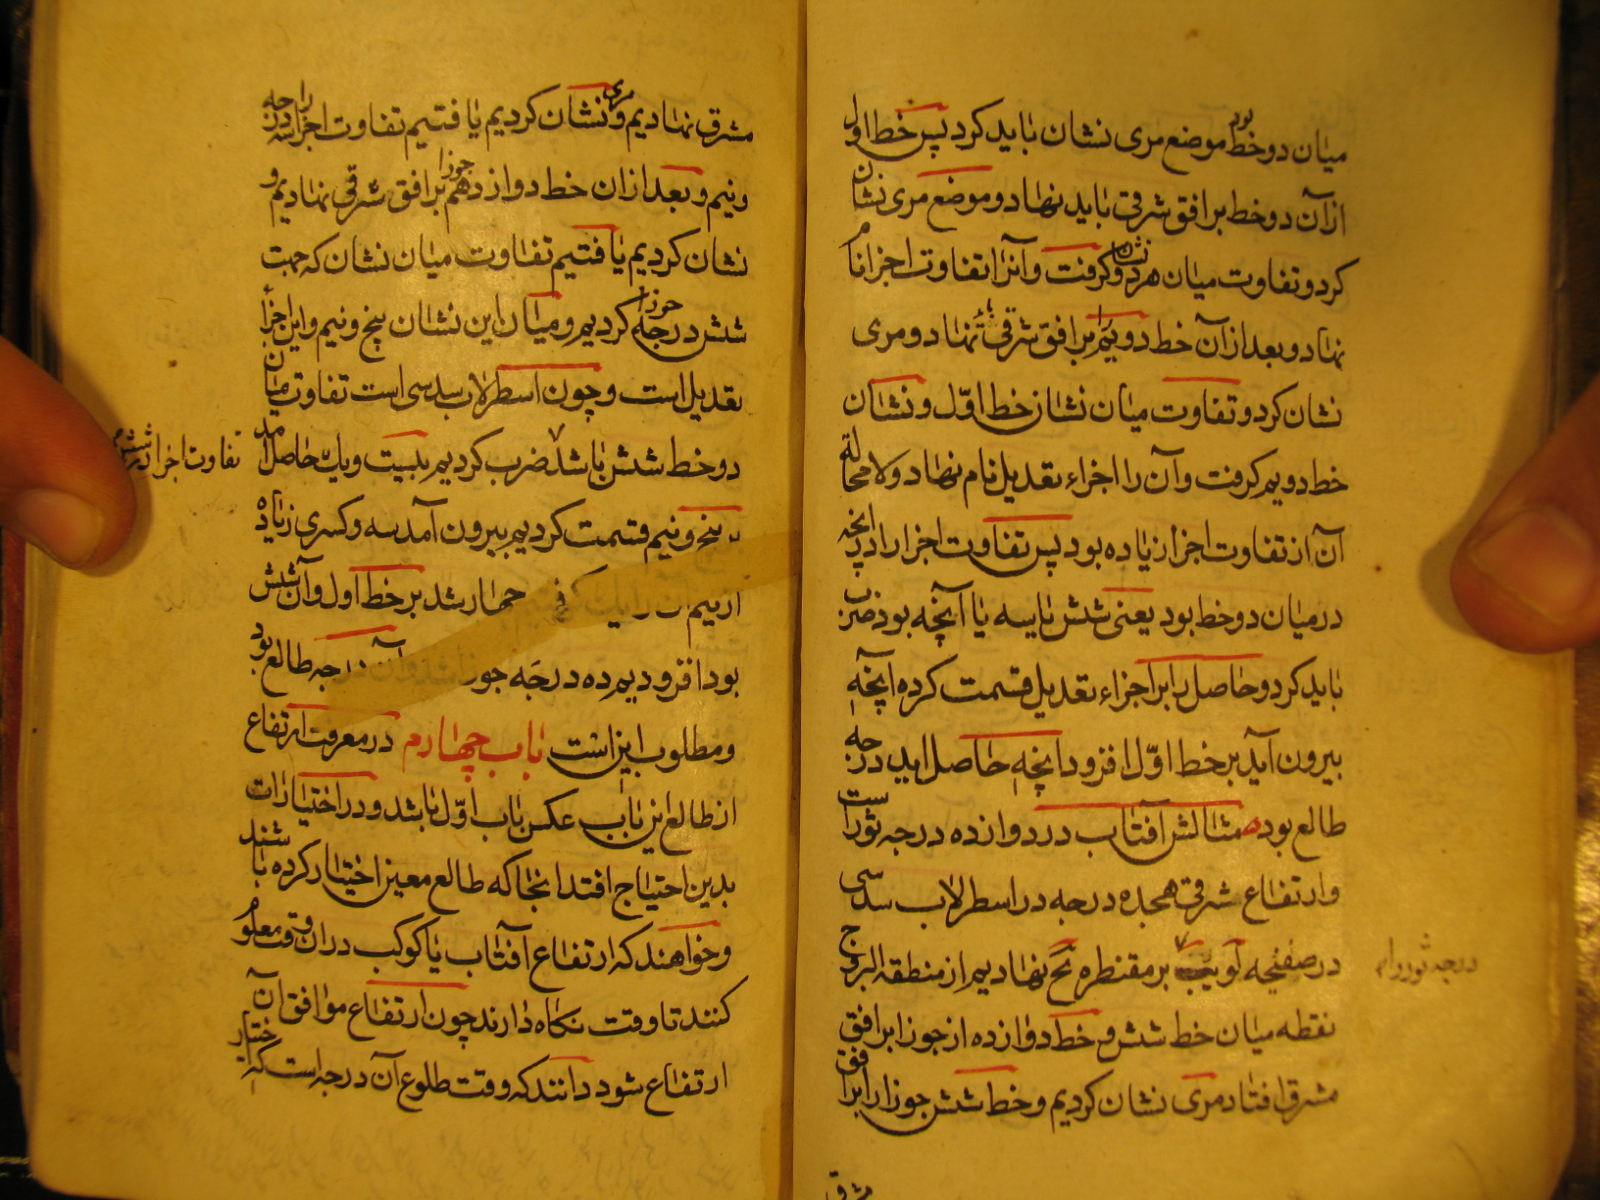 میان دو خط بود موضع مری نشان باید کرد پس خط اول
از آن دو خط بر افق شرقی باید نهاد و موضع مری نشان
کرد و تفاوت میان هر دو نشان گرفت و آنرا تفاوت اجزا نام
نهاد و بعد از آن خط دویم بر افق شرقی نهاد و مری
نشان کرد و تفاوت میان نشان خط اوّل و نشان
خط دویم گرفت و آن را اجزاء تعدیل نام نهاد و لا محاله
آن از تفاوت اجزا زیاده بود پس تفاوت اجزا را در آنچه
در میان دو خط بود یعنی شش یا سه یا آنچه بود ضرب
باید کرد و حاصل را بر اجزاء تعدیل قسمت کرده آنچه
بیرون آید بر خط اوّل افزود آنچه حاصل آید درجه
طالع بود مثالش آفتاب در دوازده درجه ثور است
و ارتفاع شرقی هجده درجه در اسطرلاب سدسی
در صفیحه لو بر مقنطره یح نهادیم از منطقة البروج
درجه ثور را
نقطه میان خط شش و خط دوازده از جوزا بر افق
مشرق افتاد مری نشان کردیم و خط شش جوزا را بر افق
مشرق
مشرق نهادیم و مری نشان کردیم یافتیم تفاوت اجزا سه درجه را
و نیم و بعد از آن خط دوازدهم جوزا بر افق شرقی نهادیم و
نشان کردیم یافتیم تفاوت میان نشان که جهت
شش درجه جوزا کردیم و میان این نشان پنج و نیم و این اجزأ
تعدیل است و چون اسطرلاب سدسی است تفاوت میان
دو خط شش باشد ضرب کردیم بیست و یک حاصل آمد
تفاوت اجزا در شش
بر پنج و نیم قسمت کردیم بیرون آمد سه و کسری زیاده
از نیم یک گر چهار شد بر خط اول و آن شش
بود افزودیم ده درجه جوز آن درجه طالع بود
و مطلوب این است باب چهارم در معرفت ارتفاع
از طالع این باب عکس باب اوّل باشد و در اختیارات
بدین احتیاج افتد آنجا که طالع معین اختیار کرده باشند
و خواهند که ارتفاع آفتاب یا کوکب در آن وقت معلوم
کنند تا وقت نگاه دارند چون ارتفاع موافق آن
ارتفاع شود دانند که وقت طلوع آن درجه است که اختیار